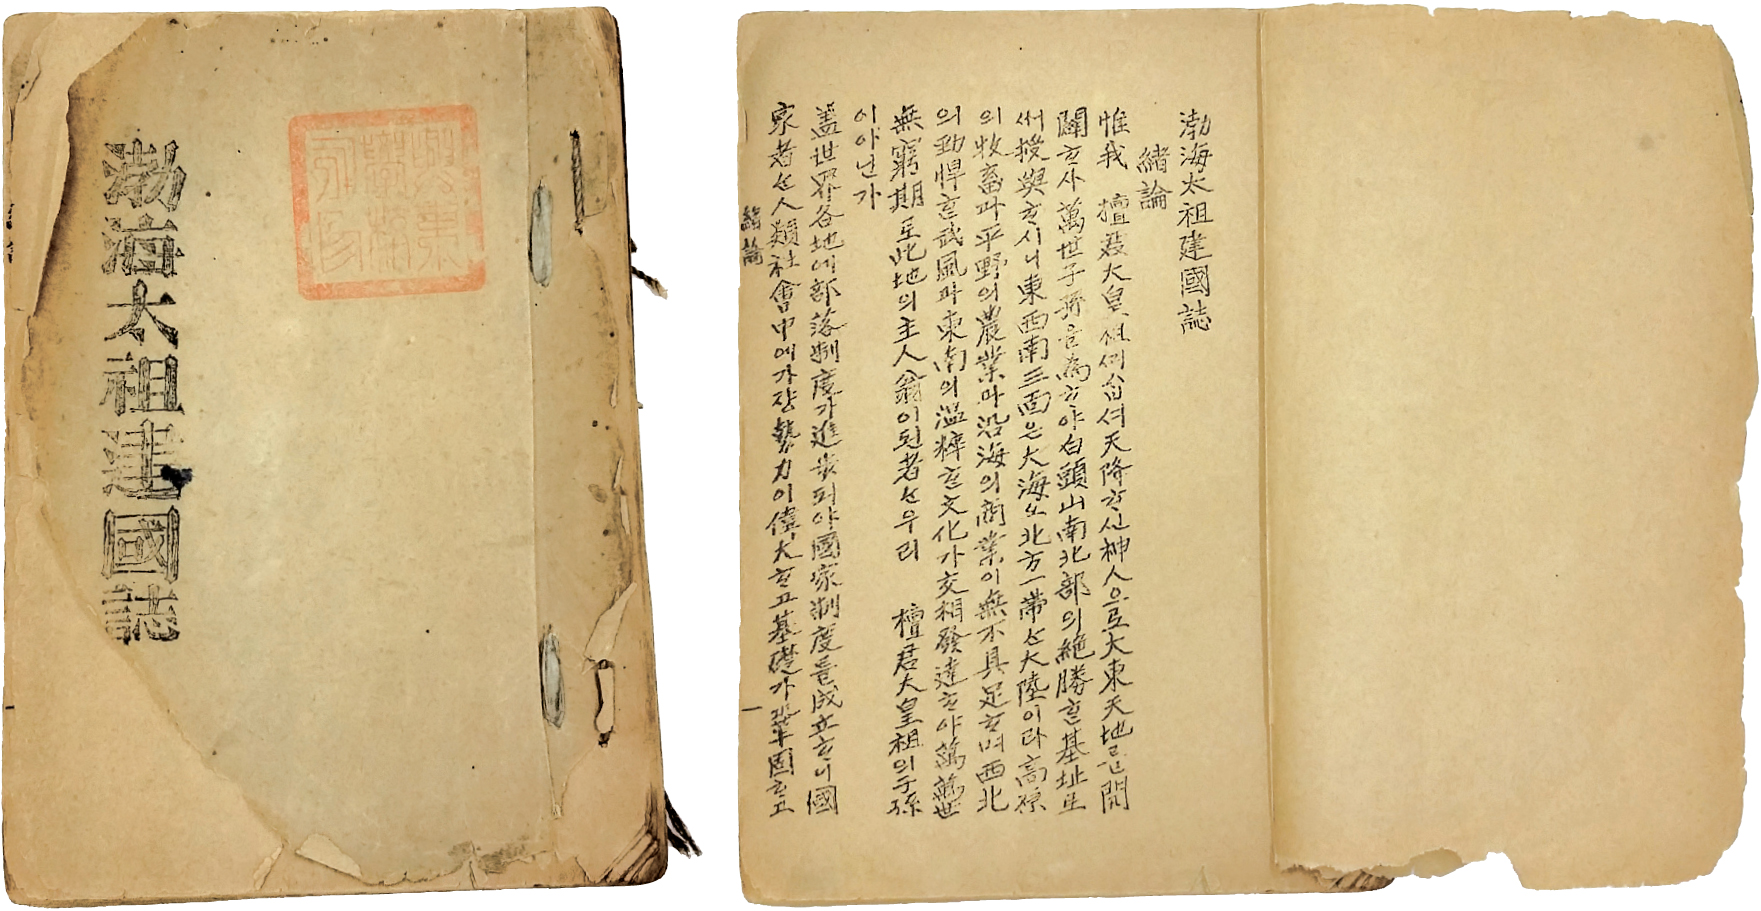 渤海太祖建國誌
渤海太祖建國誌
緖論
惟我 檀君大皇祖셔天降ᄒᆞ신神人으로大東天地를開
闢ᄒᆞ사萬世子孫을爲ᄒᆞ야白頭山南北部의絶勝ᄒᆞᆫ基址로
써授與ᄒᆞ시니東西南三面은大海오北方一帶ᄂᆞᆫ大陸이라高原
의牧畜과平野의農業과沿海의商業이無不具足ᄒᆞ며西北
의勁悍ᄒᆞᆫ武風과東南의溫粹ᄒᆞᆫ文化가交相發達ᄒᆞ야萬萬世
無窮期로此地의主人翁이된者ᄂᆞᆫ우리 檀君大皇祖의子孫
이아닌가
盖世界各地에部落制度가進步되야國家制度를成立ᄒᆞ니國
家者ᄂᆞᆫ人類社會中에가장勢力이偉大ᄒᆞ고基礎가鞏固ᄒᆞ고
緖論
一